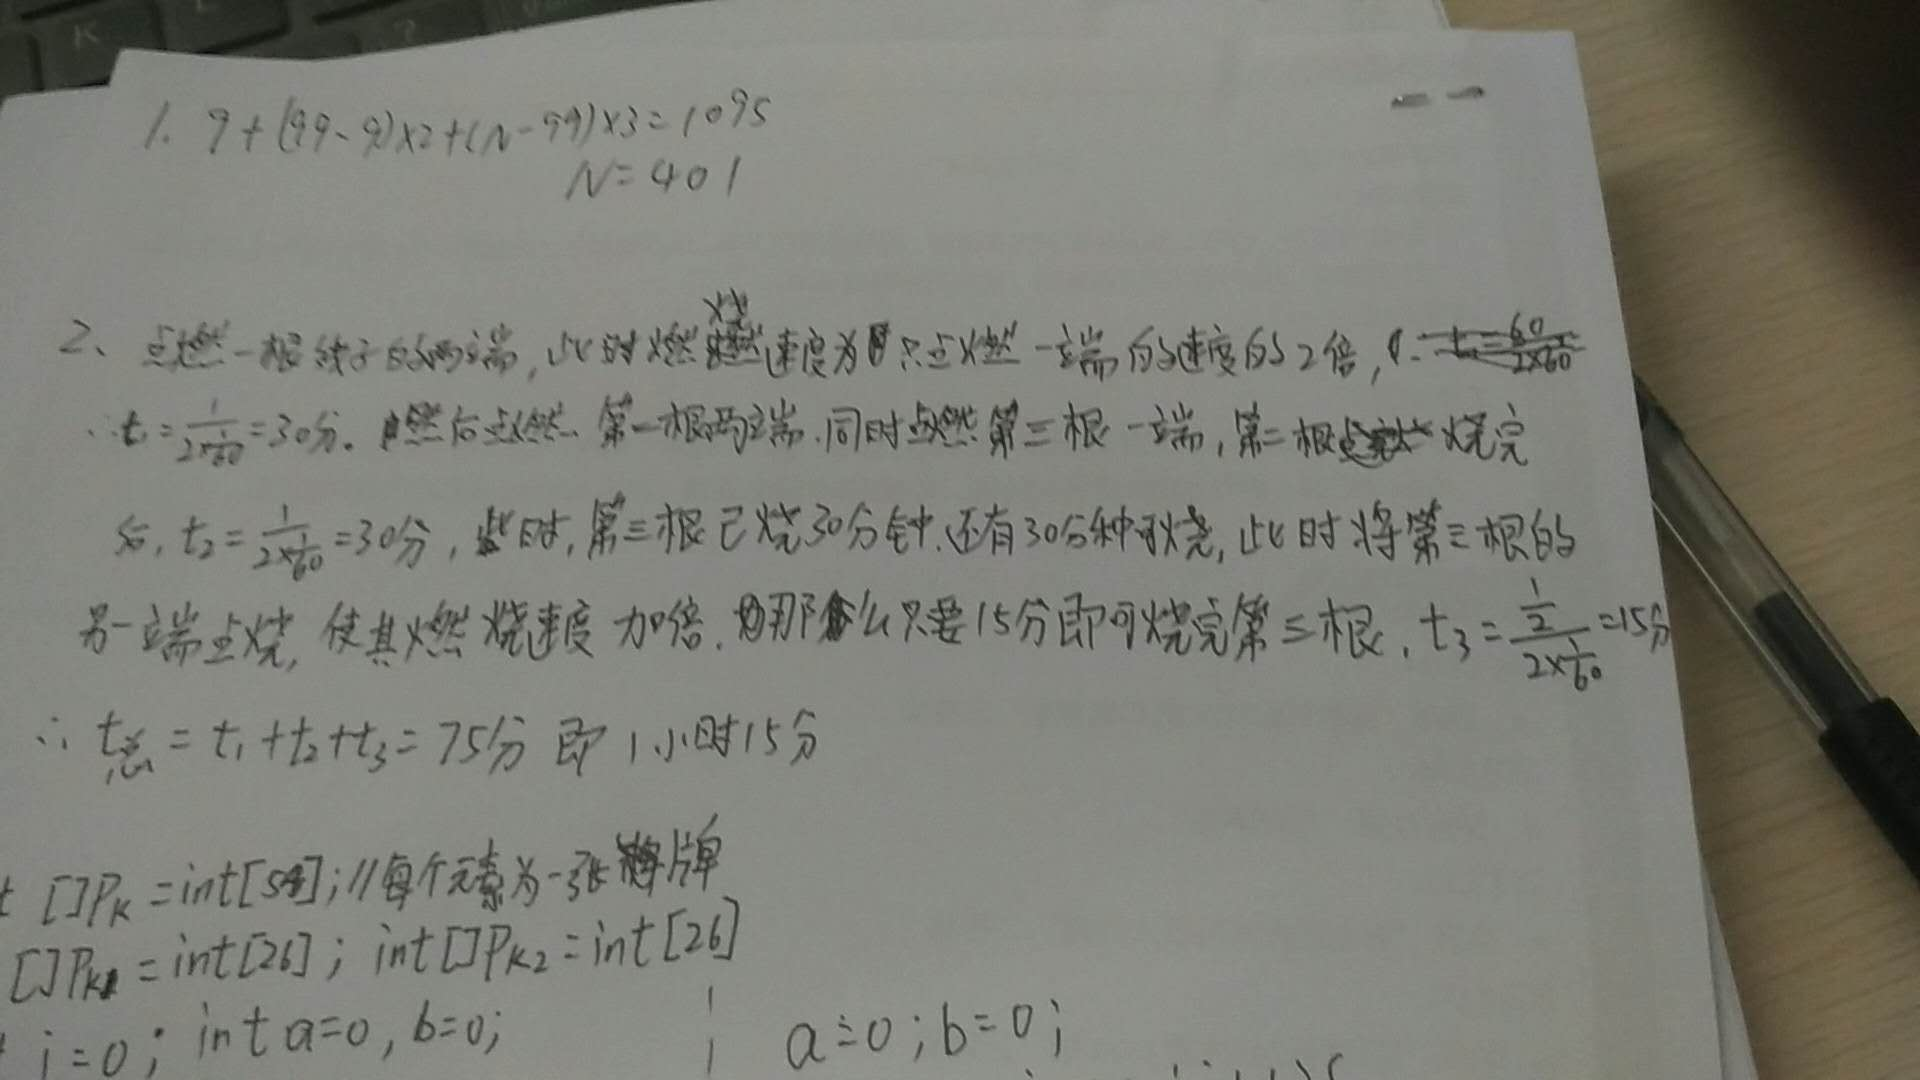 1. 9+(99-9)×2+(N-99)×3=1095
N=401
2、点燃一根线子的两端,此时燃烧速度为只点燃一端的速度的2倍,
∴t₁=1/(2×1/60)=30分。然后点燃第二根两端.同时点燃第三根一端,第二根烧完
后,t₂=1/(2×1/60)=30分,此时,第三根已烧30分钟.还有30分种可烧,此时将第三根的
另一端点烧,使其燃烧速度加倍.那么只要15分即可烧完第三根.t₃=(1/2)/(2×1/60)=15分
∴ t总=t₁+t₂+t₃=75分 即1小时15分
t []PK=int[54];//每个元素为一张牌
[]PK1=int[26]; int[]PK2=int[26]
i=0; int a=0,b=0;
a=0;b=0;